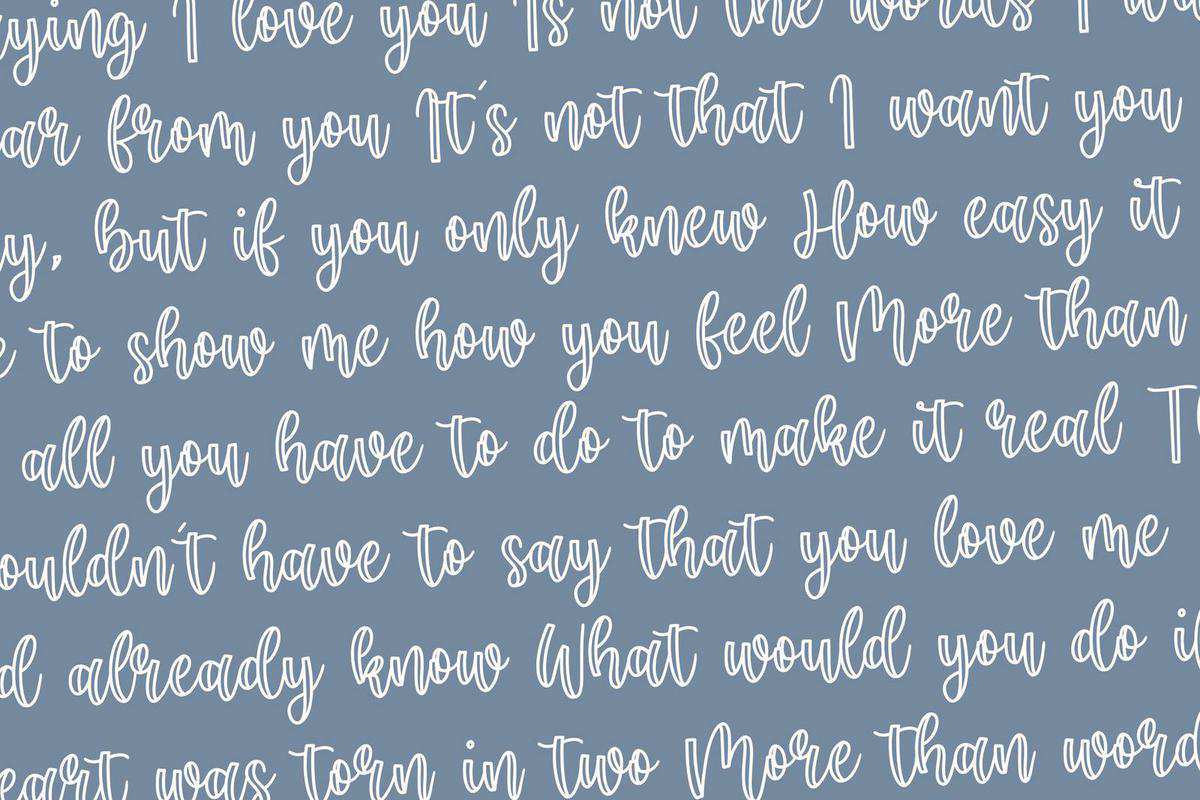 ying I love you Is not the words I wa
ar from you It's not that I want you
y, but if you only knew How easy it
e to show me how you feel More than
all you have to do to make it real T
ouldn't have to say that you love me
d already know What would you do i
eart was torn in two More than word